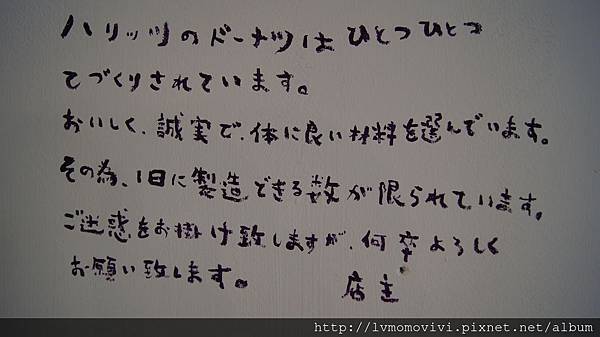 ハリッツのドーナツはひとつひとつ
てづくりされています。
おいしく、誠実で、体に良い材料を選んでいます。
その為、1日に製造できる数が限られています。
ご迷惑をお掛け致しますが、何卒よろしく
お願い致します。 店主
http://lvmomovivi.pixnet.net/album